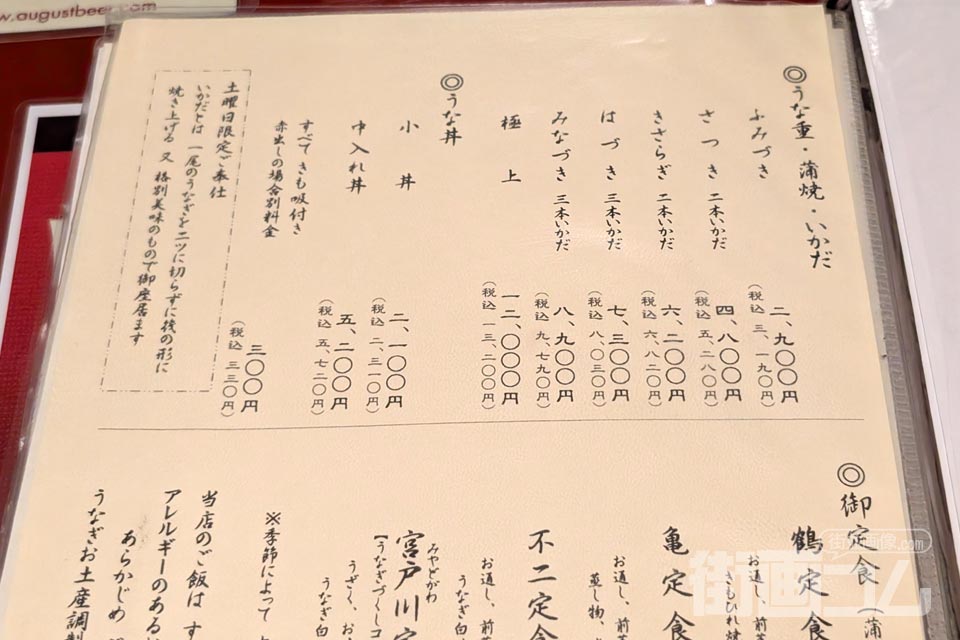 www.augustbeer.com
◎うな重・蒲焼・いかだ
ふみづき 二、九〇〇円
（税込 三、一九〇円）
さつき 二本いかだ 四、八〇〇円
（税込 五、二八〇円）
きさらぎ 二本いかだ 六、二〇〇円
（税込 六、八二〇円）
はづき 三本いかだ 七、三〇〇円
（税込 八、〇三〇円）
みなづき 三本いかだ 八、九〇〇円
（税込 九、七九〇円）
極上 一二、〇〇〇円
（税込 一三、二〇〇円）
◎うな丼
小丼 二、一〇〇円
（税込 二、三一〇円）
中入れ丼 五、二〇〇円
（税込 五、七二〇円）
すべてきも吸付き
赤出しの場合別料金 三〇〇円
（税込 三三〇円）
土曜日限定ご奉仕
いかだとは 一尾のうなぎを二ツに切らずに後の形に
焼き上げる 又 格別美味のもので御座居ます
◎御定食（蒲
鶴定食
お通し、前菜
きもひれ焼
亀定食
お通し、前
蒸し物、
不二定食
お通し、前
うなぎ白
みやとがわ
宮戸川定
【うなぎづくしコ
うざく、お
うなぎ白
※季節によって
当店のご飯は す
アレルギーのある
あらかじめ
うなぎお土産調製
街画像.com
街画コム